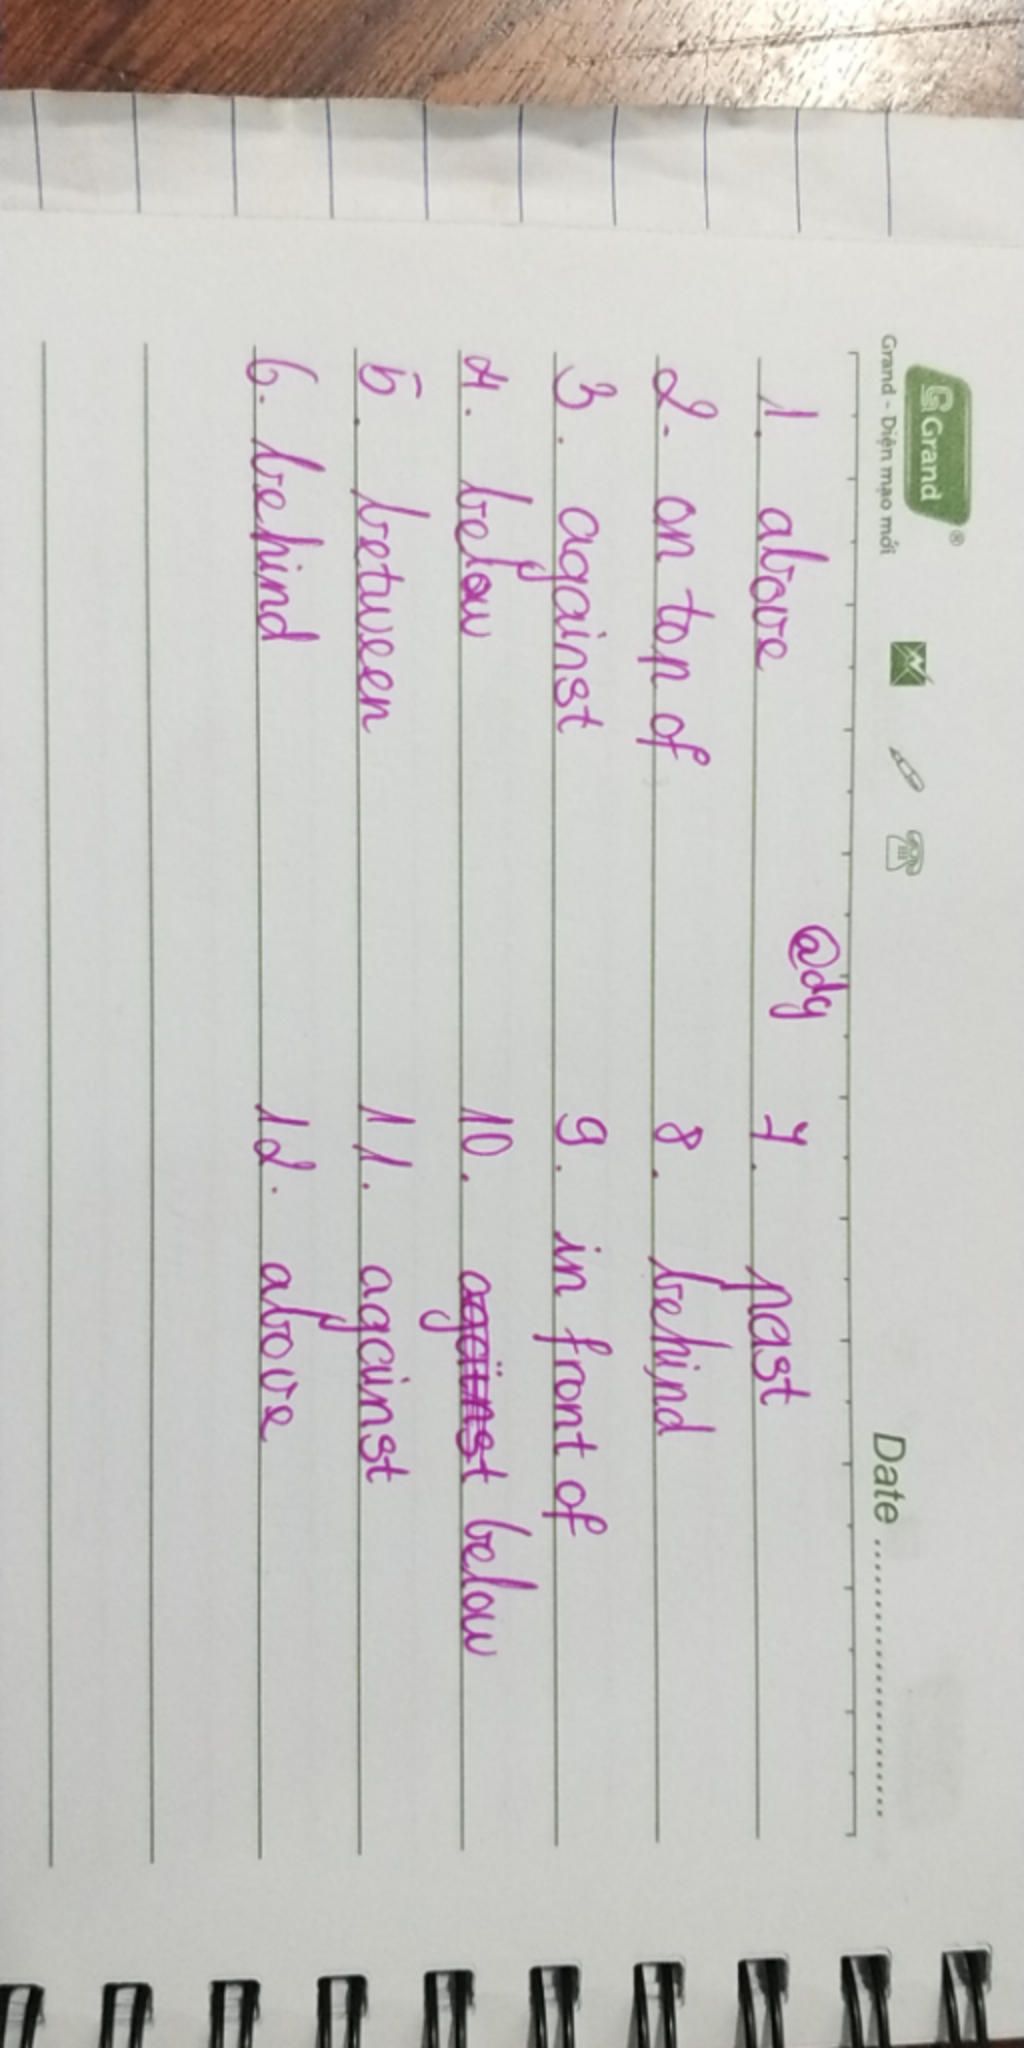 Grand®
Grand - Diện mạo mới
Date ................................
@dg
1. above
2. on top of
3. against
4. below
5. between
6. behind
7. past
8. behind
9. in front of
10. against below
11. against
12. above